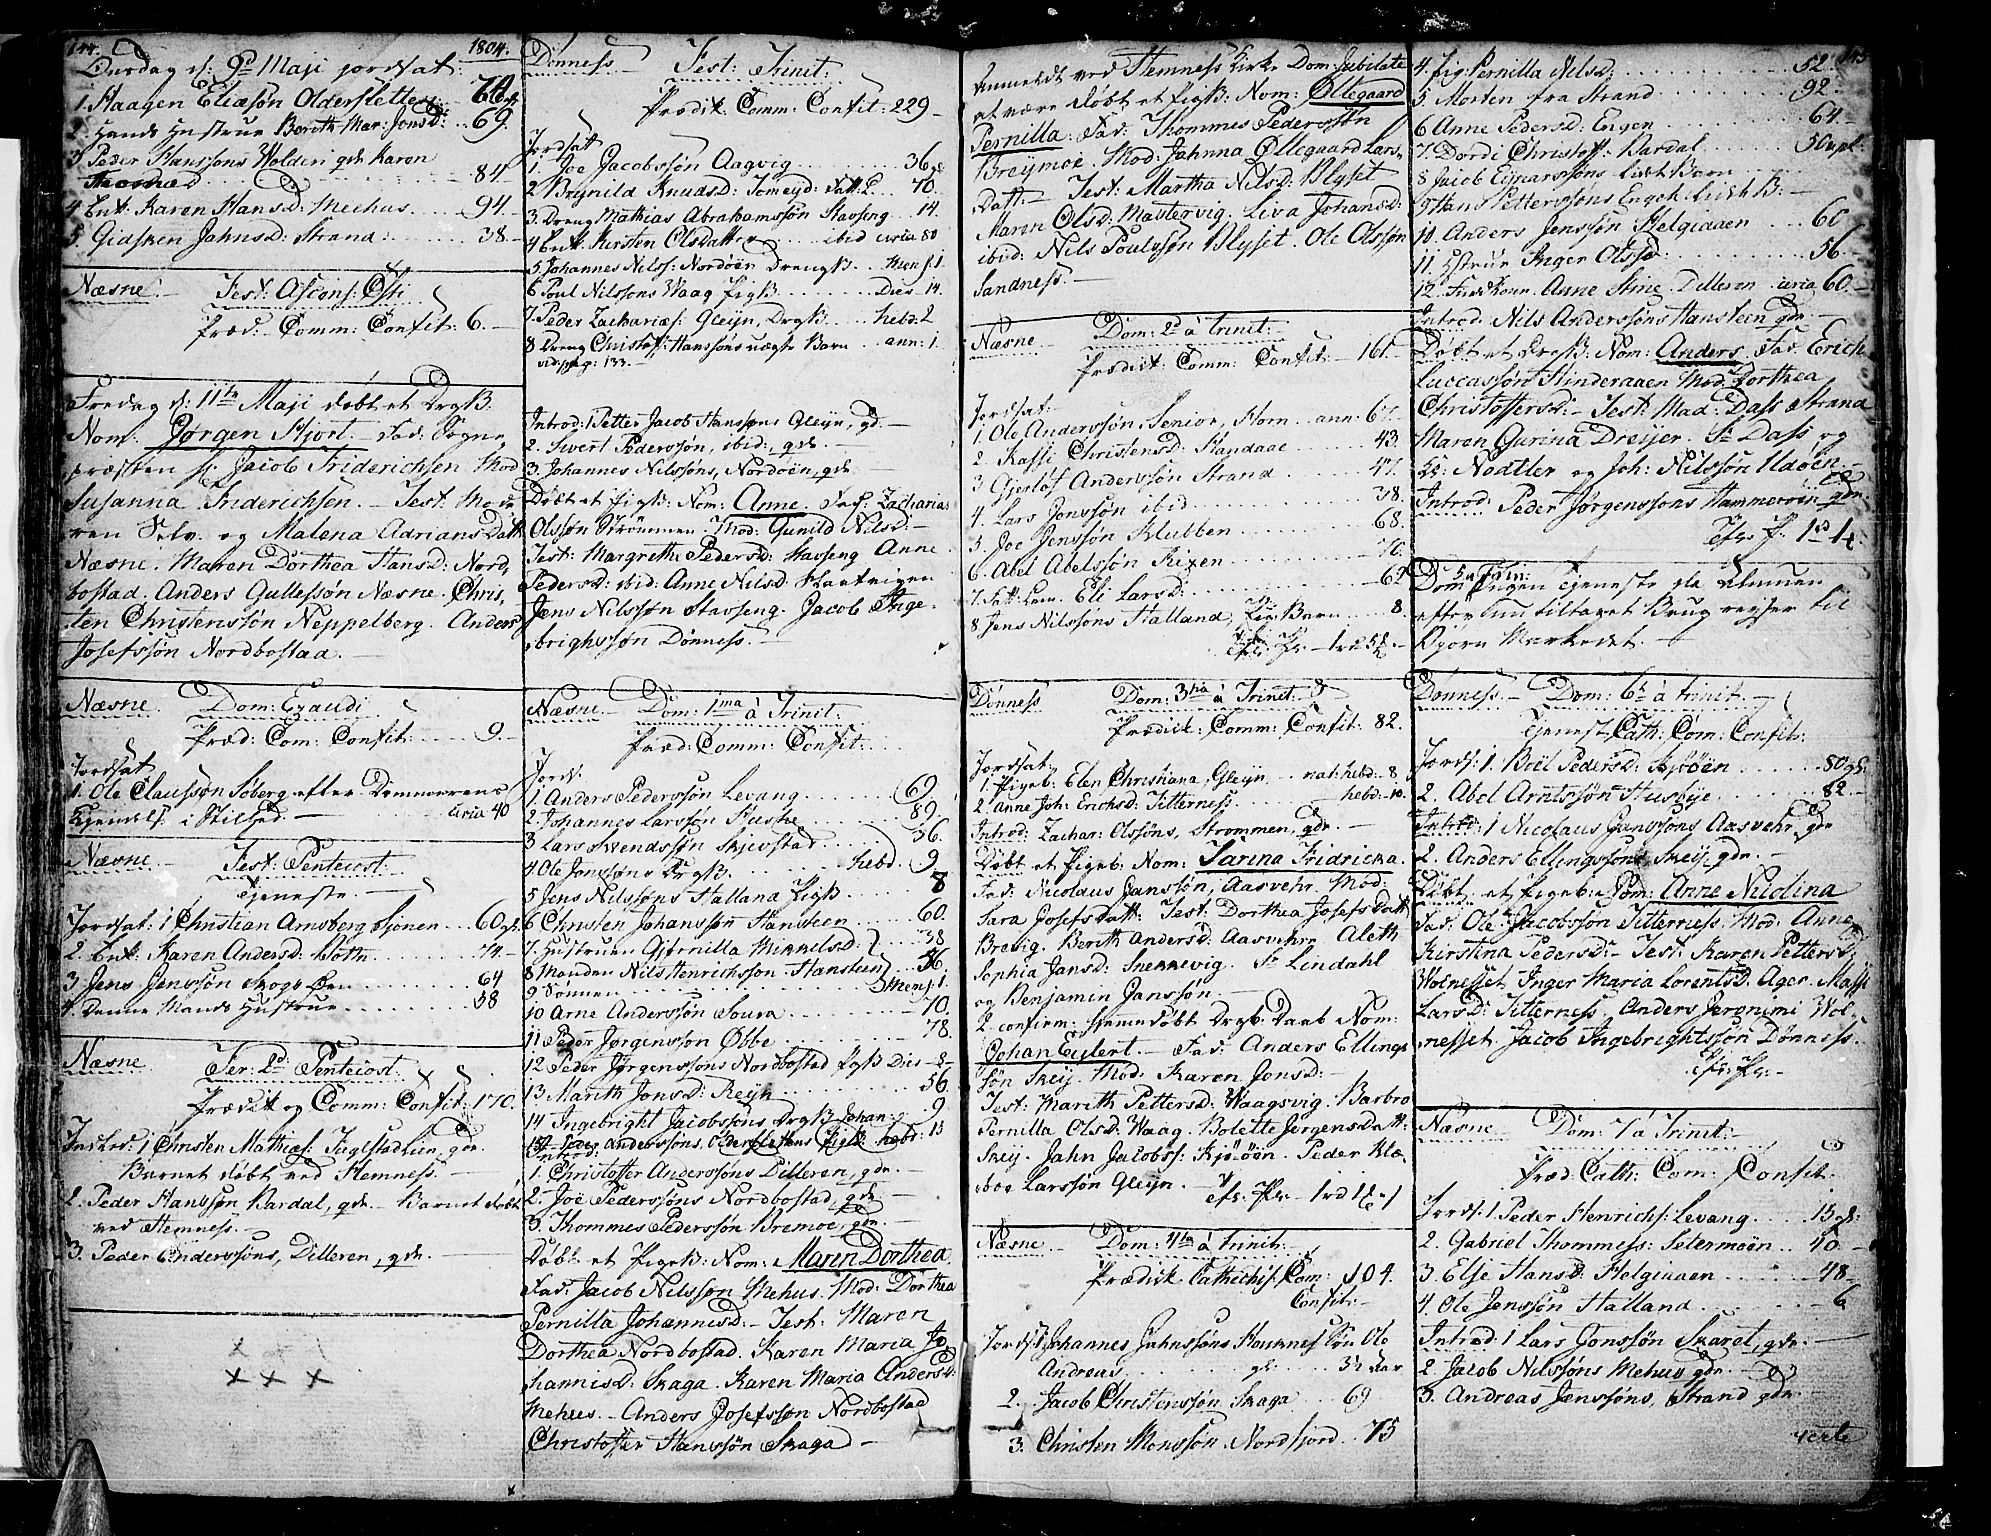 144. 1804.
Onsdag d: 9d Maji jordsat:
1. Haagen Eliæsøn Oldersletten
2. Hands Hustrue Bereth Mar: Jonsd: 69.
3 Peder Hanssøns Wolden gde Karen
84
4 Enk: Karen Hansd: Meehus 94.
5. Gidsken Jahnsd: Strand 38
Næsne. Fest: Ascens: Xsti
Præd: Comm: Confit: 6.
Fredag d: 11te Maji døbt et Drgb:
Nom: Jørgen Hjort. Fad: Sogne
præsten Hr Jacob Friderichsen Mod
Susanna Friderichsen. Test: Mode
ren Selv. og Malena Adrians Datt
Næsne. Maren Dorthea Hansd: Nord,
bostad. Anders Gullessøn Næsne. Chris,
ten Christenssøn Neppelberg. Anders
Josefsøn Nordbostad.
Næsne Dom: Exaudi
Præd: Com: Confit: 9.
Jordsat
1. Ole Claussøn Søberg efter Dommerens
Kjendelse i Stilhed. circa 40
Næsne. Fest: Pentecost:
Tjeneste
Jordsat: 1 Christian Arnsberg Sjonen 60 gl:
2. Enk: Karen Andersd: 74.
3 Jens Jenssøn Skogs Øen 64
4. Denne Mands Hustrue 58
Næsne Fer: 2d: Pentecost:
Prædik og Comm: Confit: 170.
Introd: 1 Christen Mathiæs: Faglstadlien, gde
Barnet døbt ved Hemness.
2. Peder Hanssøn Bardal, gde Barnet døbt
ved Hemness.
3. Peder Anderssøns, Dilleren, gde.
Dønness Fest: Trinit:
Prædik Comm: Confit: 229
Jordsat
1. Joe Jacobssøn Aagvig 36 gl
2 Brynild Knudsd: 70.
3. Dreng Mathias Abrahamssøn Stavseng 14.
4 Enk: Kirsten Olsdatter ibid circa 80
5 Johannes Nilss: Nordøen Drengb. Mens: 1
6 Poul Nilssøns Waag Pigb Dies 14.
7. Peder Zachariæs: Gleijn, Drgb hebd: 2
8 Dreng Christoff: Hanssøns uægte Barn ann: 1.
vid: pag: 133.
Introd: 1 Petter Jacob Hanssøns Gleijn, gd.
2. Siwert Pederssøn, ibid:, gde.
3. Johannes Nilssøns, Nordøen, gde
Døbt et Pigb: Nom: Anne Fad: Zacharias
Olssøn Strømmen Mod: Gunild Nilsd:
Test: Margrethe Pedersd: Stavseng Anne
Pedersd: ibid: Anne Nilsd
Jens Nilssøn Stavseng. Jacob Inge,
brightssøn Dønness.
Næsne. Dom: 1ma à Trinit:
Præd: Comm: Confit:
Jords:
1 Anders Pederssøn Levang 69.
2 Johannes Larssøn 89.
3 Lars Swendssøn Skjevstad 36.
4 Ole Jonssøns Drgb hebd. 9
5 Jens Nilssøns Halland Pigb 8
6 Christen Johanssøn Hansteen 60.
7 Hustruen Gjernilla Mikkelsd: 38
8 Manden Nils Henrichssøn Hansteen 36.
9 Sønnen Mens: 1.
10 Arne Anderssøn Soura 70.
11 Peder Jørgenssøn Øbbe 78.
12 Peder Jørgenssøns Nordbostad Pgb Dies 8
13 Marith Jonsd: Reyn 56.
14 Ingebright Jacobssøns Drgb Johan: 9
15 Peder Anderssøns, hebr: 13
Introd:
1. Christoffer Anderssøns Dilleren, gde.
2. Joe Pederssøns Nordbostad, gde
3. Thommes Pederssøn Bremoe, gde.
Døbt et Pigeb: Nom: Maren Dorthea.
Fad: Jacob Nilssøn Mehus. Mod: Dorthea
Pernilla Johannisd: Test: Maren
Dorthea Nordbostad. Karen Maria Jo,
hannisd: Skaga. Karen Maria Andersd:
Mehus. Anders Josefssøn Nordbostad
Christoffer Hanssøn Skaga
Anmeldt ved Hemness Kirke Dom: Jubilate
at være døbt et Pigb: Nom: Øllegaard
Pernilla. Fad: Thommes Pederssøn
Breymoe. Mod: Jahnna Øllegaard Lars,
Datt. Test: Martha Nilsd: Blyset
Maren Olsd: Mastervig. Liva Johansd:
ibid: Nils Poulssøn Blyset. Ole Olssøn
Sandness.
Næsne Dom: 2d à Trinit:
Prædik: Comm: Confit: 161.
Jordsat:
1. Ole Anderssøn, Senior, Horn ann: 67.
2 Kassi Christensd: Kandaae 43.
3 Gjerløf Anderssøn Strand 47.
4. Lars Jonssøn ibid 38.
5. Joe Jenssøn Klubben 68.
6. Abel Abelssøn Rixen 70.
7. Eli Larsd: 69
8 Jens Nilssøns Halland, Barn 8
Dønness Dom: 3tia à Trinit:
Prædik: Comm: Confit: 82.
Jordsat
1. Pigeb: Elen Christiana, Gleijn nat: hebd: 8
2 Anne Joh: Ericksd: Titterness. hebd: 10.
Introd: Zachar: Olssøns, Strømmen, gde.
Døbt et Pigeb: Nom: Sarina Fridricka.
Fad: Nicolaus Janssøn, Aasvehr. Mod:
Sara Josefsdatt: Test: Dorthea Josefs Datt
Brevig. Berith Andersd: Aasvehr Aleth
Sophia Jansd: Snekkevig. Sr Lindahl
og Benjamin Janssøn.
2. confirm: hjemmedøbt Drgb. Daab Nom:
Johan Eylert. Fad: Anders Ellings
søn Skeij. Mod: Karen Jonsd:
Test: Marith Pettersd: Waagsvig. Barbro
Pernilla Olsd: Waag. Bolette Jørgensdatt:
Skeij. Jahn Jacobss: Kjøtøen. Peder Klæ,
boe Larssøn Gleijn.
Næsne Dom: 4ta à Trinit:
Prædik Cathechis: Com: 104.
Confit:
Jords: 1 Johannes Jahnssøns Søn Ole
Andreas gl: 3½ Aar
2. Jacob Christenssøn Skaga 69
3. Christen Monssøn Nordfjord 75
145
4. Pig: Pernilla Nilsd: 52.
5. Morten fra Strand 92.
6 Anne Pedersd: Engen 64
7. Dordi Christoff: Bardal 50 apl.
8 Jacob Ejnarssøns Barn
9 Hans Petterssøns Engen B:
10. Anders Jenssøn Helgiaaen 60
11 Hustrue Inger Olsd: 56
12. Anne Stine Dilleren circa 60.
Introd: Nils Anderssøns Hansteen gde.
Døbt et Drgb: Nom: Anders. Fad: Erich
Luccassøn Hinderaaen Mod: Dorthea
Christoffersd: Test: Mad: Dass Strand
Maren Gurina Dreijer. Sr Dass og
Sr: Nodtler og Joh: Nilssøn Udøen
Introd: Peder Jørgenssøns Hammerøen gde
Dom 5 à Trin:
Ingen Tjeneste da Almuen
efter sin tiltaget Brug reyser til
Bjørn Markedet.
Dønness. Dom: 6t à Trinit.
Tjeneste, Cath: Com: Confit:
Jords: 1. Boel Pedersd: Kjøtøen 80 gl:
2. Abel Arntssøn Husbye 82
Introd: 1 Nicolaus Janssøns Aasvehr gde
2. Anders Ellingssøns Skeij gde.
Døbt: et Pigeb: Nom: Anne Nicolina
Fad: Ole Jacobssøn Titterness. Mod: Anne
Kirstina Pedersd: Test: Karen Pettersd:
Wolnesset Inger Maria Lorentsd: Ager. Massi
Larsd: Titterness. Anders Jeronimi Wol,
nesset. Jacob Ingebrightssøn Dønness.
Næsne Dom: 7 à Trinit:
Præd: Cath: Com: Confit.
Jords: 1 Peder Henrichs: Levang 15 gl:
2. Gabriel Thommess: Setermoen 40
3. Else Hansd: Helgiaaen 48
4. Ole Jenssøn Halland 6
Introd: 1 Lars Jonssøn Skaret, gde.
2 Jacob Nilssøns Mehus gde
3. Andreas Jenssøns, Strand gde
verte